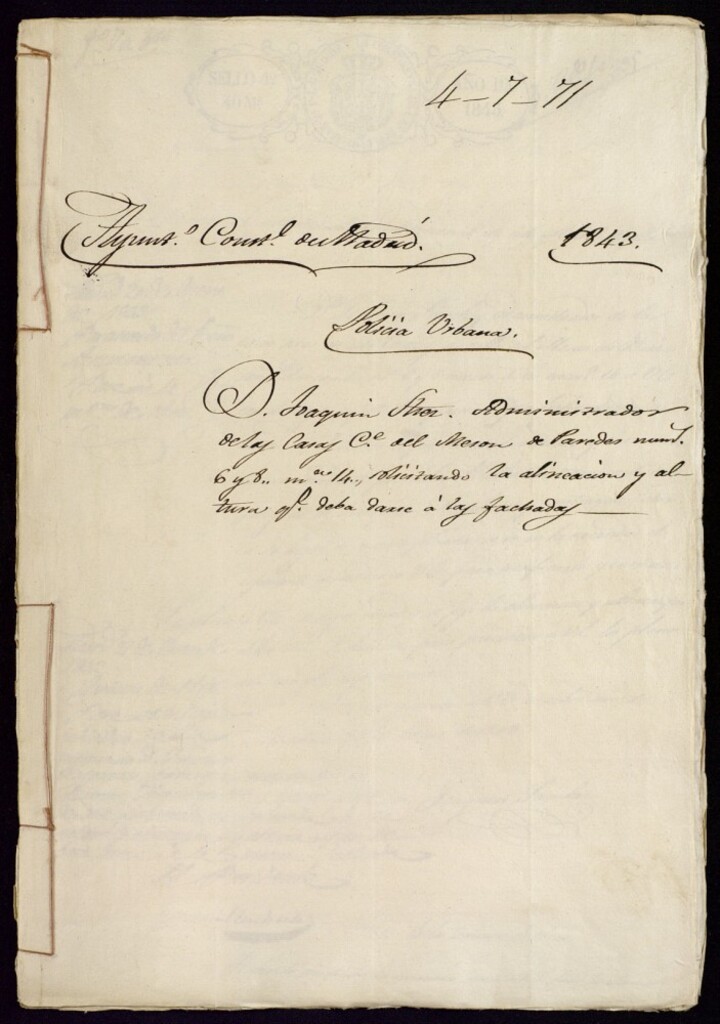 4-7-71
Ayunt.º Const.l de Madrid. 1843.
Policia Urbana.
D. Joaquin Administrador
de las Casas C.e del Meson de Paredes num.s
6 y 8.. m.na 14., solicitando la alineacion y al-
tura q.e deba darse á las fachadas